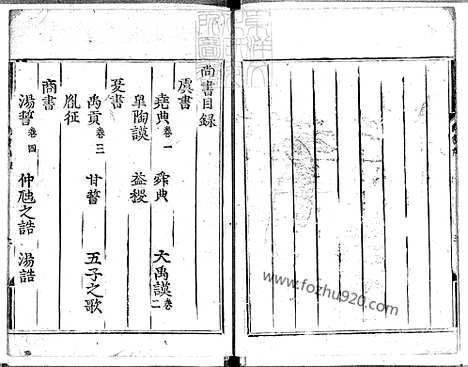 尚書目録
虞書
堯典卷一 舜典 大禹謨卷二
皐陶謨 益稷
夏書
禹貢卷三 甘誓 五子之歌
胤征
商書
湯誓卷四 仲虺之誥 湯誥
www.fozhu920.com